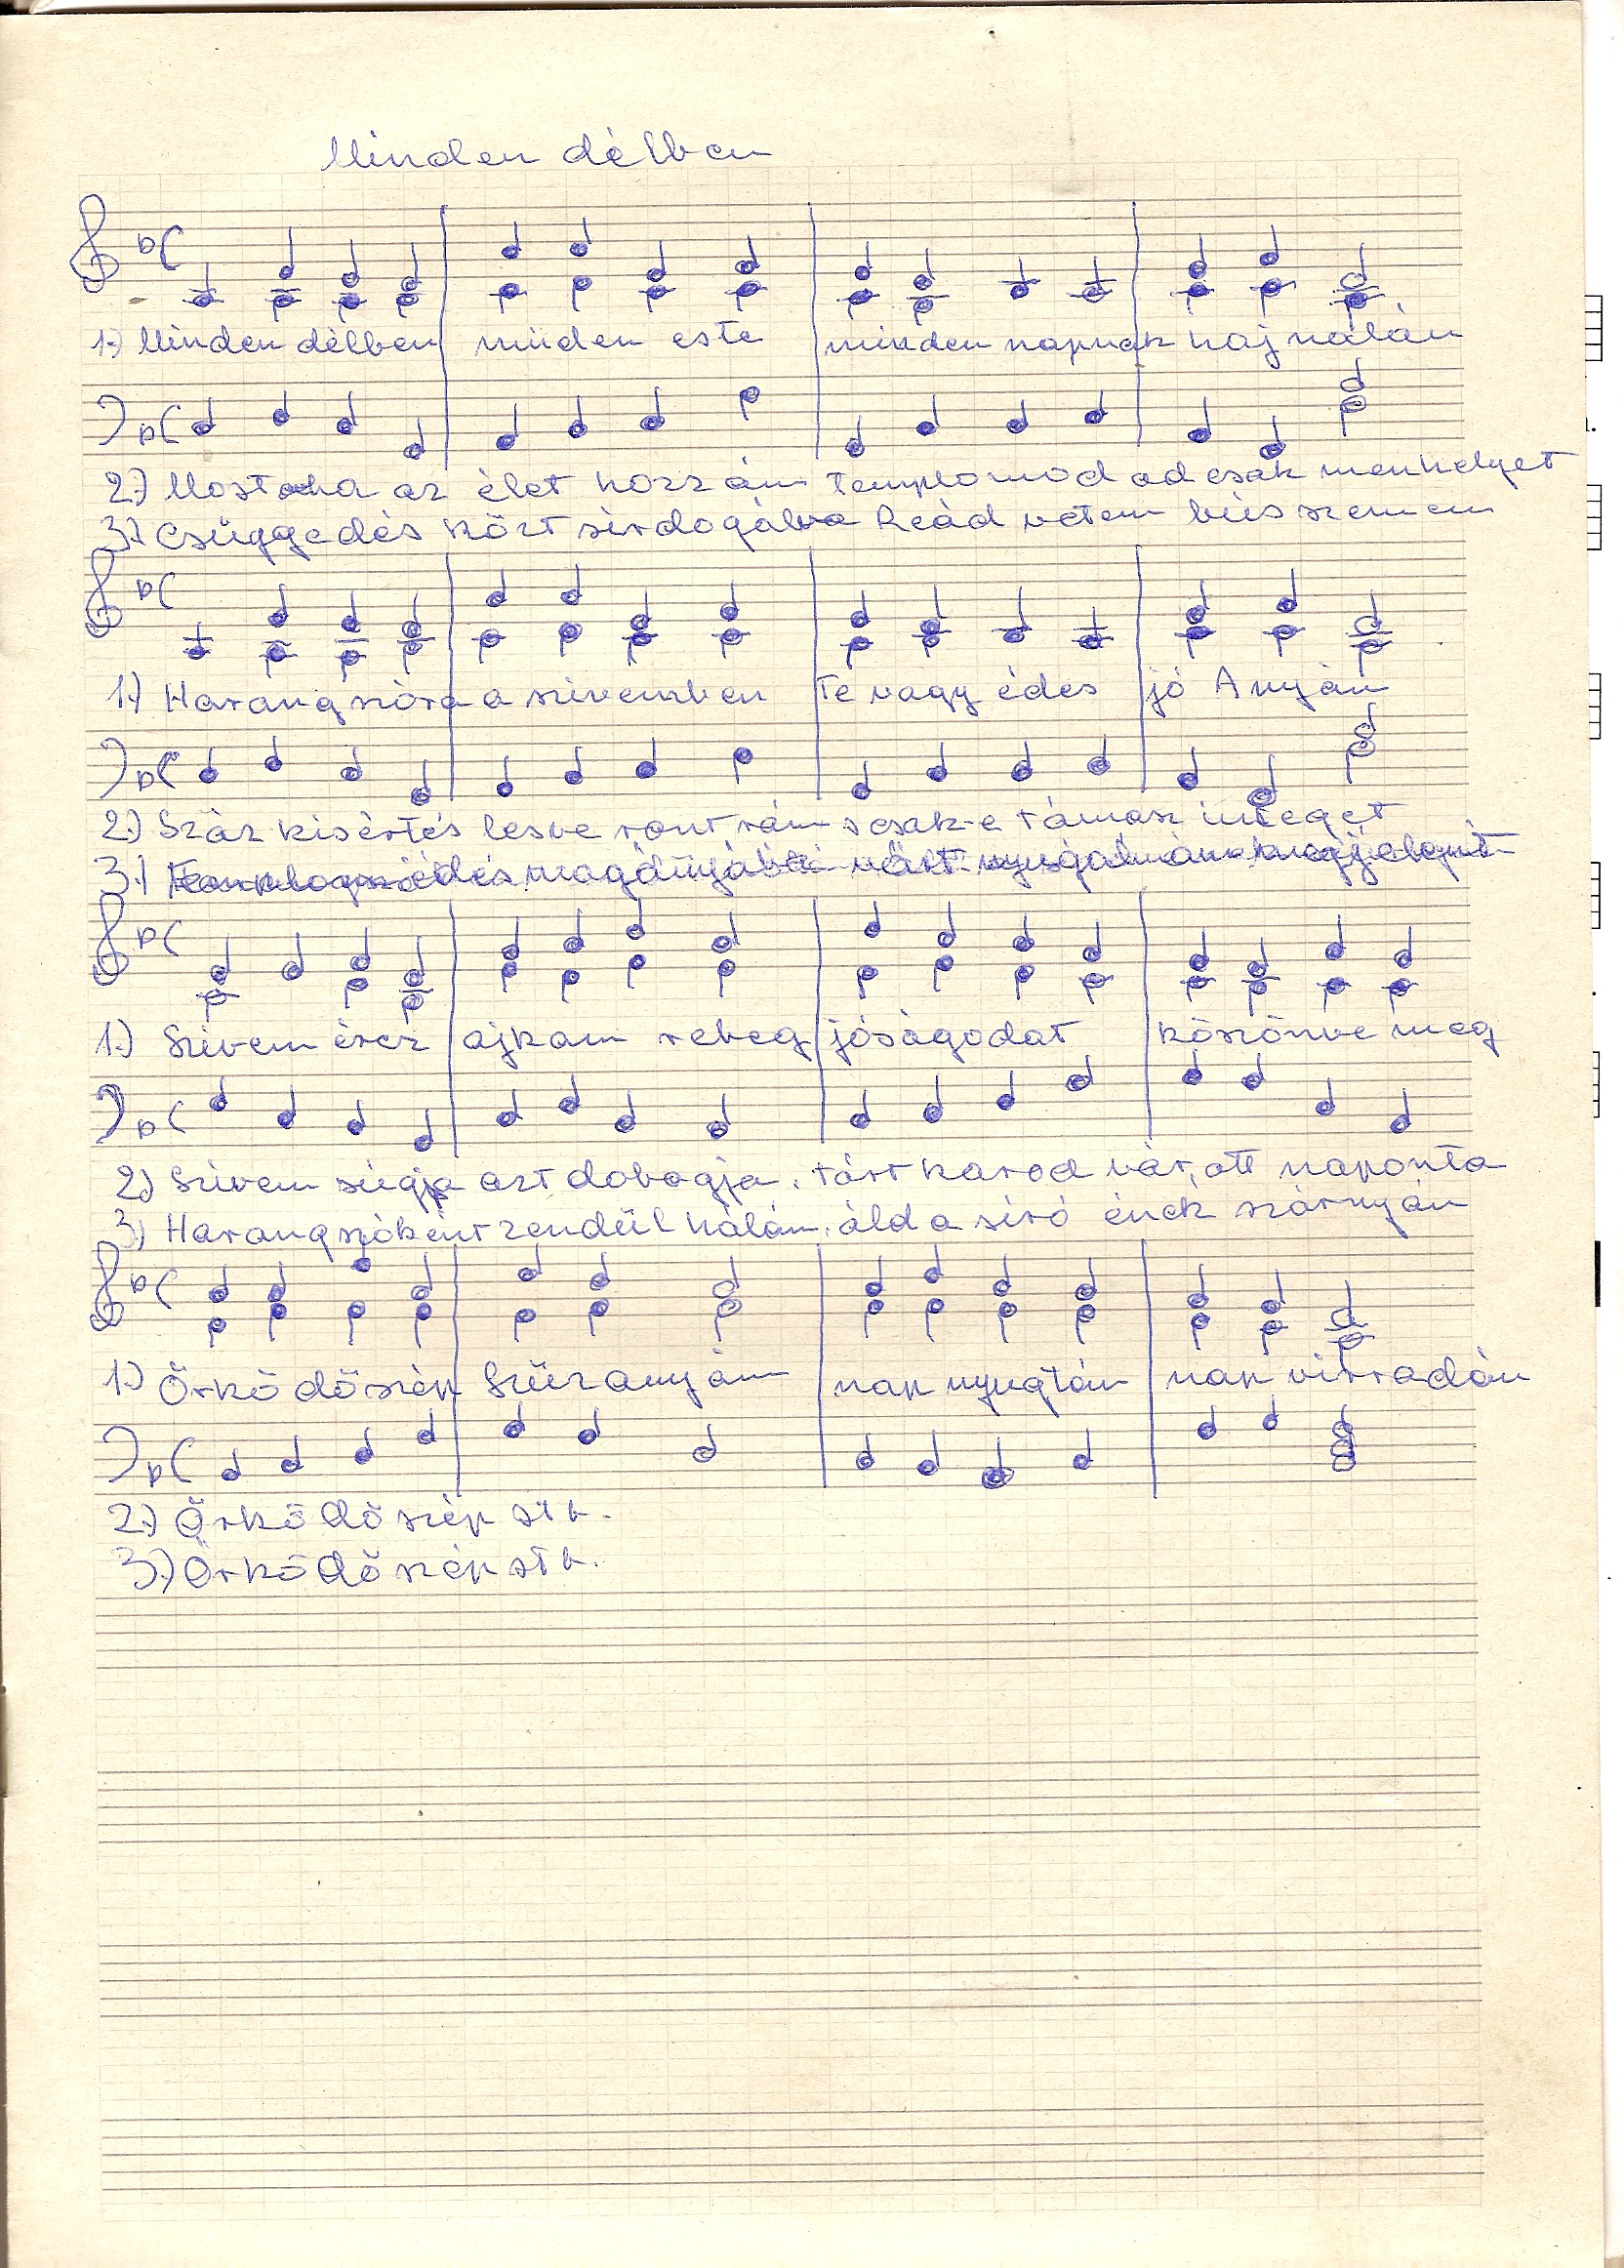 Minden délben
1.) Minden délben minden este minden napnak hajnalán
2.) Mostoha az élet hozzám templomod ad csak menhelyet
3.) Csüggedés közt sirdogálva Reád vetem bús szemem
1.) Harangszóra a szivemben Te vagy édes jó Anyám
2.) Száz kisértés lesve ront rám s csak e támasz integet
3.) édes magányába várt nyugalmam megjelent
1.) Szivem érez ajkam rebeg jóságodat köszönve meg
2.) Szivem súgja azt dobogja, tárt karod vár, ott naponta
3.) Harangszóként zendül hálám, áld a síró ének szárnyán
1.) Őrködő szép Szűzanyám nap nyugtán nap virradán
2.) Őrködő szép stb.
3.) Őrködő szép stb.